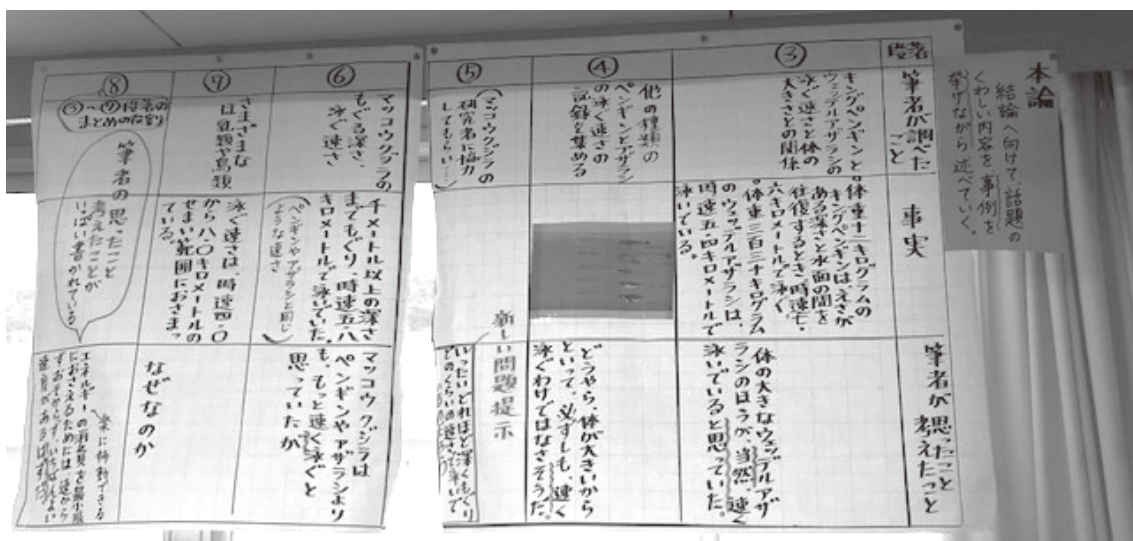 本論
結論へ向けて、話題の
くわしい内容を事例を
挙げながら述べていく。
段落
筆者が調べた
こと
事実
筆者が思ったこと
考えたこと
③
キングペンギンと
ウェッデルアザラシの
泳ぐ速さと体の
大きさとの関係
体重十二キログラムの
キングペンギンはえさが
ある深さと水面の間を
往復するとき、時速七・
六キロメートルで泳ぐ。
体重三百三十キログラム
のウェッデルアザラシは、
時速五・四キロメートルで
泳いでいる。
体の大きなウェッデルアザ
ラシのほうが、当然、速く
泳いでいると思っていた。
④
他の種類の
ペンギンとアザラシ
の泳ぐ速さの
記録を集める
どうやら、体が大きいから
といって、必ずしも、速く
泳ぐわけではなさそうだ。
⑤
(マッコウクジラの
研究者に協力
してもらい…)
新しい問題提示
いったいどれほど深くもぐり
どのくらいの速さで泳いで
⑥
マッコウクジラの
もぐる深さ、
泳ぐ速さ
千メートル以上の深さ
までもぐり、時速五・八
キロメートルで泳いでいた。
(ペンギンやアザラシと同じ
ような速さ)
マッコウクジラは
ペンギンやアザラシより
も、もっと速く泳ぐと
思っていたが
⑦
さまざまな
ほ乳類や鳥類
泳ぐ速さは、時速四・〇
から八・〇キロメートルの
せまい範囲におさまっ
ている。
なぜなのか
⑧
③~⑦段落の
まとめの段落
筆者の思ったこと
考えたことが
いっぱい書かれている
楽に移動できる
エネルギーの消費を最小限
におさえるためには、速から
ず、おそからず、いちばんよい
速度があるはずだ